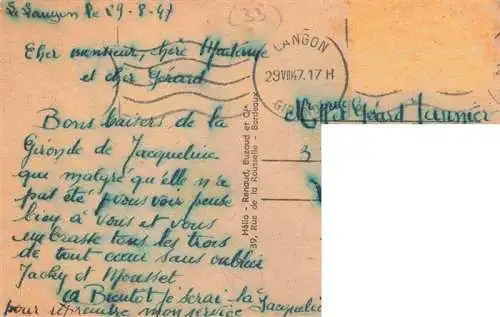 Langon le 29-8-47
(33)
Cher monsieur, chère Madame
et cher Gérard
LANGON
29 VIII 47. 17 H
GIRONDE
Mr et Gérard
Bons baisers de la
Gironde de Jacqueline
que malgré qu'elle n'ai
pas été vous voir pense
bien à vous et vous
embrasse tous les trois
de tout cœur sans oublier
Jacky et Mousset
a Bientôt je serai là Jacqueline
pour reprendre mon service
Hélio - Renaud, Buzaud et Cie
39, Rue de la Rousselle - Bordeaux
3